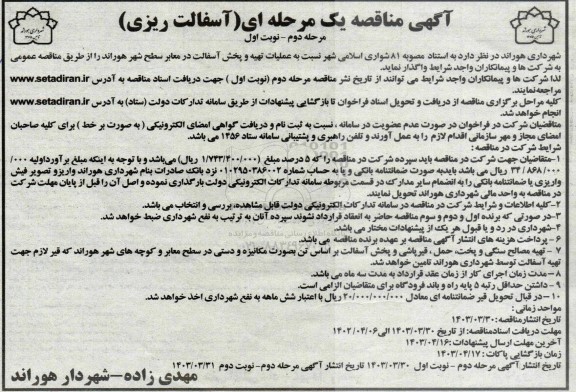 آگهی مناقصه یک مرحله ای(آسفالت ریزی)
مرحله دوم - نوبت اول
شهرداری هوراند در نظر دارد به استناد مصوبه ۸۱ شورای اسلامی شهر نسبت به عملیات تهیه و پخش آسفالت در معابر سطح شهر هوراند را از طریق مناقصه عمومی
به شرکت ها و پیمانکاران واجد شرایط واگذار نماید.
لذا شرکت ها و پیمانکاران واجد شرایط می توانند از تاریخ نشر مناقصه مرحله دوم (نوبت اول) جهت دریافت اسناد مناقصه به آدرس www.setadiran.ir
مراجعه نمایند.
کلیه مراحل برگزاری مناقصه از دریافت و تحویل اسناد فراخوان تا بازگشایی پیشنهادات از طریق سامانه تدارکات دولت (ستاد) به آدرس www.setadiran.ir
انجام خواهد شد.
متقاضیان شرکت در فراخوان در صورت عدم عضویت در سامانه ، نسبت به ثبت نام و دریافت گواهی امضای الکترونیکی ( به صورت بر خط ) برای کلیه صاحبان
امضای مجاز و مهر سازمانی اقدام لازم را به عمل آورند و تلفن راهبری و پشتیبانی سامانه ستاد ۱۴۵۶ می باشد.
شرایط شرکت در مناقصه :
۱-متقاضیان جهت شرکت در مناقصه باید سپرده شرکت در مناقصه را که ۵ درصد مبلغ (۱/۷۴۳/۴۰۰/۰۰۰ ریال) می‌باشد و با توجه به اینکه مبلغ برآورد اولیه ۰۰۰/
۳۴/۸۶۸/۰۰۰ ریال می باشد باید به صورت ضمانتنامه بانکی و یا به حساب شماره ۰۱۰۲۹۵۰۳۸۶۰۰۲ نزد بانک صادرات بنام شهرداری هوراند واریز و تصویر فیش
واریزی یا ضمانتنامه بانکی را به انضمام سایر مدارک در قسمت مربوطه سامانه تدارکات الکترونیکی دولت بارگذاری نموده و اصل آن را قبل از پایان مهلت شرکت
در مناقصه به واحد مالی شهرداری هوراند تحویل نمایند.
۲-کلیه اطلاعات و شرایط شرکت در مناقصه در سامانه تدارکات الکترونیکی دولت قابل مشاهده، بررسی و انتخاب می باشد.
۳-در صورتی که برنده اول و دوم و سوم مناقصه حاضر به انعقاد قرارداد نشوند سپرده آنان به ترتیب به نفع شهرداری ضبط خواهد شد.
۴-شهرداری در رد و یا قبول هر یک از پیشنهادات مختار می باشد.
۶- پرداخت هزینه های انتشار آگهی مناقصه بر عهده برنده مناقصه می باشد.
۷- تهیه مصالح سنگی و پخت، حمل ، قیرپاشی و پخش آسفالت بر اساس تن بصورت مکانیزه و دستی در سطح معابر و کوچه های شهر هوراند که قیر لازم جهت
تهیه آسفالت توسط شهرداری هوراند تامین خواهد شد.
۸- مدت زمان اجرای کار از زمان عقد قرارداد به مدت سه ماه می باشد.
۹- داشتن حداقل رتبه ۵ پایه راه و باند فرودگاه برای متقاضیان الزامی است.
۱۰- در قبال تحویل قیر ضمانتنامه ای معادل ۲۰/۰۰۰/۰۰۰/۰۰۰ ریال با اعتبار شش ماهه به نفع شهرداری اخذ خواهد شد.
مواعد زمانی :
تاریخ انتشار مناقصه: ۱۴۰۳/۰۳/۳۰
مهلت دریافت اسناد مناقصه: از تاریخ ۱۴۰۳/۰۳/۳۰ الی ۱۴۰۲/۰۴/۰۶
آخرین مهلت ارسال پیشنهادات: ۱۴۰۳/۰۴/۱۶
زمان بازگشایی پاکات : ۱۴۰۳/۰۴/۱۷
تاریخ انتشار آگهی مرحله دوم - نوبت اول ۱۴۰۳/۰۳/۳۰ تاریخ انتشار آگهی مرحله دوم- نوبت دوم ۱۴۰۳/۰۳/۳۱
مهدی زاده-شهردار هوراند